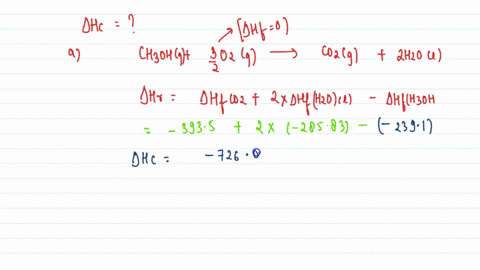 ΔHc = ?
[ΔHf=0]
a) CH3OH(g) + 3/2 O2(g) → CO2(g) + 2H2O(l)
ΔHr = ΔHf CO2 + 2xΔHf(H2O)(l) - ΔHf(H3OH
= -393.5 + 2x (-285.83) - (-239.1)
ΔHc = -726.0